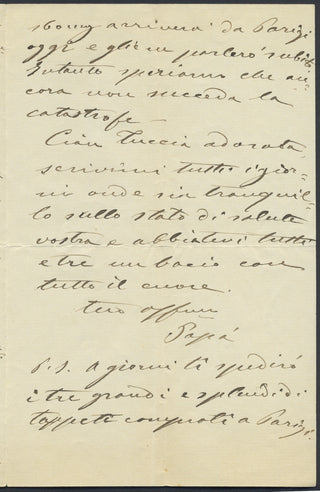 arriverà da Parigi
oggi e gliene parlerò subito
Intanto speriamo che an-
cora non succeda la
catastrofe –
Ciau Tuccia adorata,
scrivimi tutti i gior-
ni onde sia tranquil-
lo sullo stato di salute
vostra e abbiatevi tutti
e tre un bacio con
tutto il cuore.
tuo affmo
Papà
P.S. A giorni ti spedirò
i tre grandi e splendidi
tappeti comprati a Parigi.